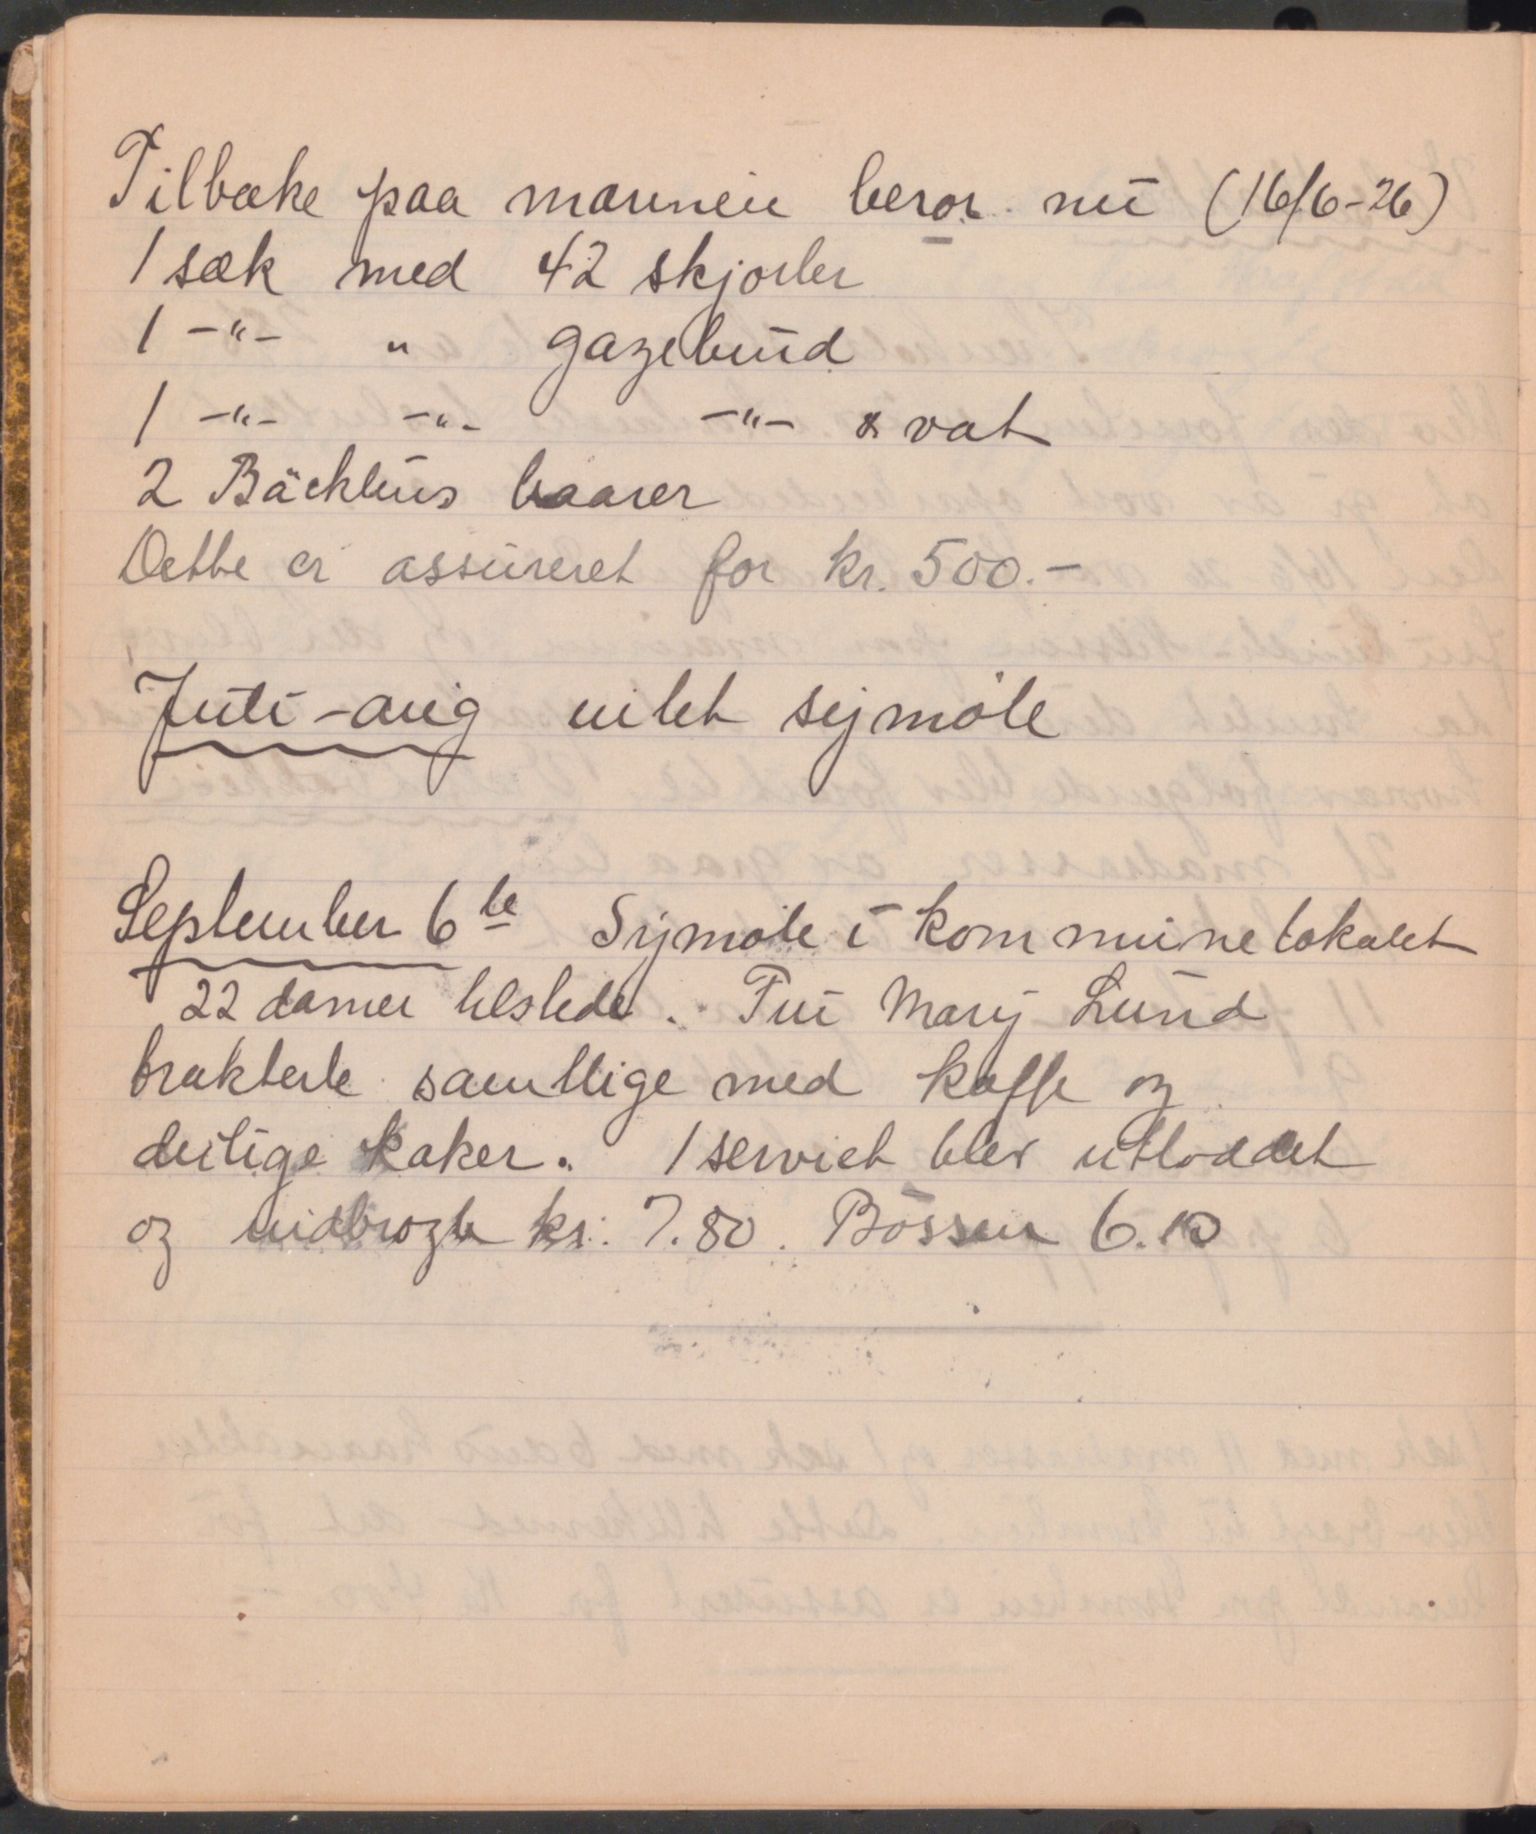 Tilbake paa marinen beror nu (16/6-26)
1 sæk med 42 skjorter
1 -"- " gazebind
1 -"- -"- -"- & vat
2 Bäcklins baarer
Dette er assureret for kr. 500.-
Juli-aug intet symøte
September 6te Symøte i kommunelokalet
22 damer tilstede. Fru Mary Lund
trakterte samtlige med kaffe og
deilige kaker. 1 serviet blev utloddet
og indbragte kr. 7.80. Bøssen 6.10